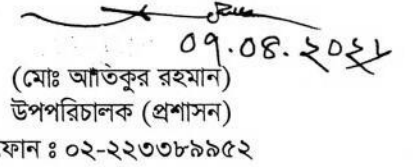 ০৭.০৪.২০২৮
(মোঃ আতিকুর রহমান)
উপপরিচালক (প্রশাসন)
ফোন ঃ ০২-২২৩৩৮৯৯৫২